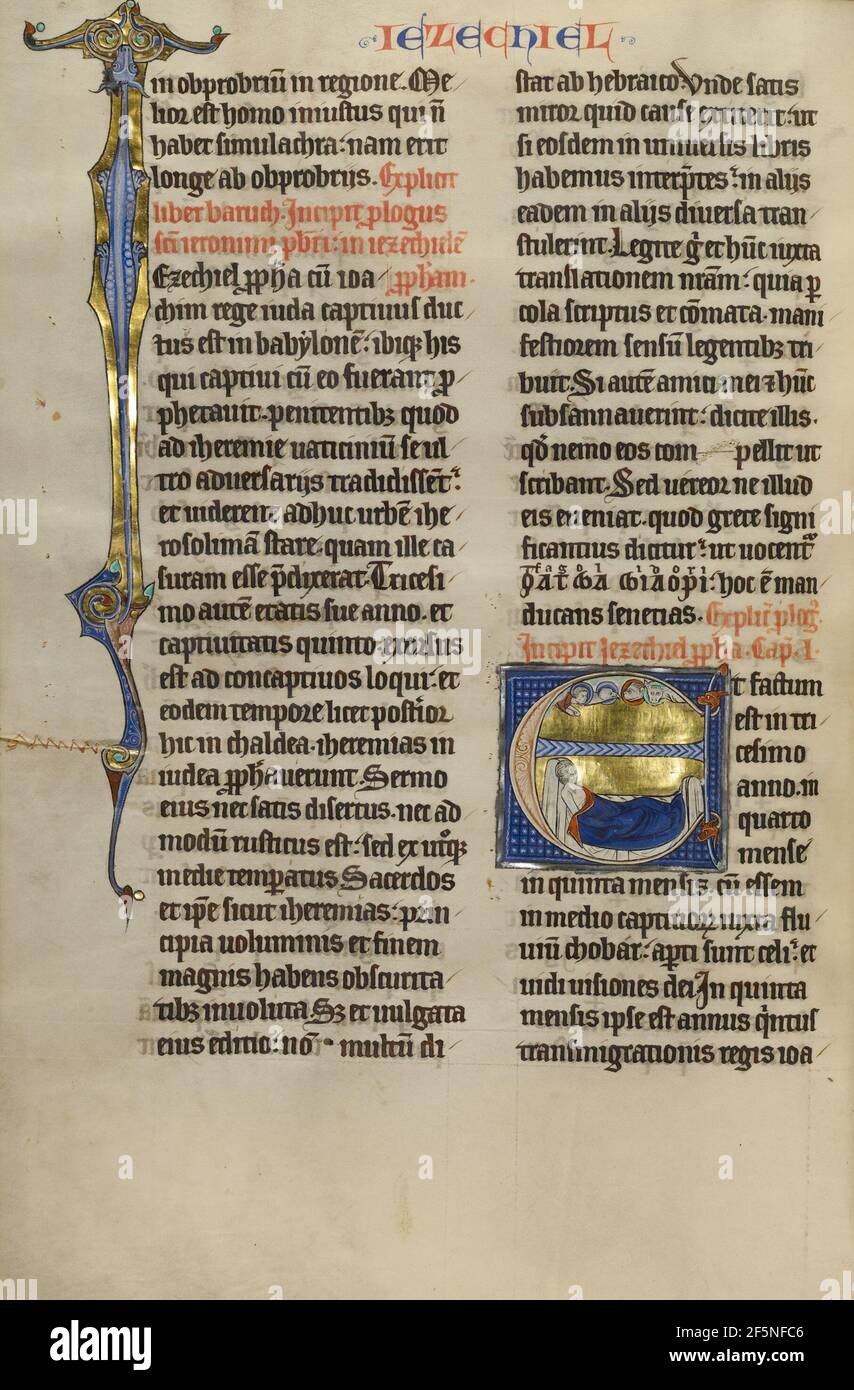 IEZECHIEL
in obprobriū in regione. Me
lior est homo iniustus qui ñ
habet simulachra: nam erit
longe ab obprobrijs. Explicit
liber baruch. Incipit plogus
sc̄i ieronimi pb̄ri: in iezechielē
Ezechiel ꝓpħa cū ioa ꝓpħam.
chim rege iuda captiuus duc
tus est in babylonē: ibiqꝫ his
qui captiui cū eo fuerant ꝓ
phetauit. penitentibꝫ quod
ad iheremie uaticiniū se ul
tro aduersarijs tradidissēt:
et uiderēt adhuc urbē ihe
rosolimā stare. quam ille ca
suram esse p̄dixerat. Tricesi
mo autē etatis sue anno. et
captiuitatis quinto exorsus
est ad concaptiuos loqui: et
eodem tempore licet post̄ior
hic in chaldea. iheremias in
iudea ꝓpħauerunt. Sermo
eius nec satis disertus. nec ad
modū rusticus est: sed ex utͦqꝫ
medie temꝑatus Sacerdos
et ip̄e sicut iheremias: prin
cipia uoluminis et finem
magnis habens obscurita
tibꝫ inuoluta Sꝫ et uulgata
eius editio: nō multū di
stat ab hebraico. Vnde satis
miror quid cause extiterit: ut
si eosdem in uniuersis libris
habemus interp̄tes: in alijs
eadem in alijs diuersa tran
stulerint. Legite g̊ et hūc iuxta
translationem nr̄am: quia ꝑ
cola scriptus et cōmata. mani
festiorem sensū legentibꝫ tri
buit. Si autē amici mei ⁊ hūc
subsannauerint: dicite illis.
qd̄ nemo eos com pellit ut
scribant. Sed uereor ne illud
eis eueniat. quod grece signi
ficantius dicitur: ut uocentͬ
hoc ē man
ducans senecias. Explic̄ plog᷒.
Incipit Iezechiel ꝓpħa. Cap. I.
Et factum
est in tri
cesimo
anno. in
quarto
mense
in quinta mensis. cū essem
in medio captiuoꝝ iuxta flu
uiū chobar: aꝑti sunt celi: et
uidi uisiones dei In quinta
mensis ipse est annus q̄ntus
transmigrationis regis ioa
alamy
Image ID: 2F5NFC6
www.alamy.com